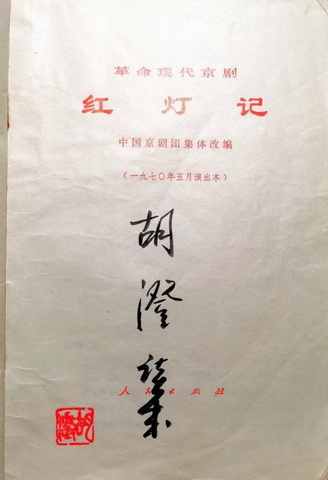 革命现代京剧
红灯记
中国京剧团集体改编
(一九七〇年五月演出本)
胡
澄
人民出版社